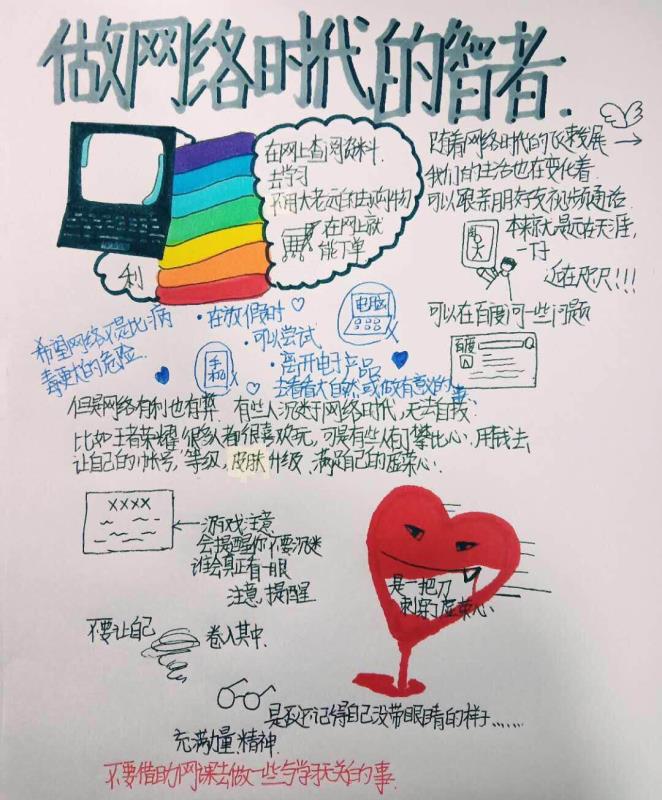 做网络时代的智者.
在网上查阅资料
去学习
不用大老远的去购物
在网上就
能下单
利
随着网络时代的飞速发展
我们的生活也在变化着
可以跟亲朋好友视频通话
本来就是远在天涯,
一下子
近在咫尺!!!
聊天
可以在百度问一些问题
百度
希望网络不是比病
毒更大的危险.
·在放假时
·可以尝试
·离开电子产品
去看看大自然或做有意义的事
电脑
手机
但是网络有利也有弊.有些人沉迷于网络时代,无去自我.
比如王者荣耀很多人都很喜欢玩,可是有些人们攀比心.用钱去
让自己的帐号,等级,皮肤升级.满足自己的虚荣心.
XXXX
游戏注意
会提醒你不要沉迷
谁会真正看一眼
注意,提醒
是一把刀
刺穿了虚荣心.
不要让自己 卷入其中.
是否还记得自己没带眼睛的样子......
充满力量精神.
不要借助网课去做一些与学习无关的事.